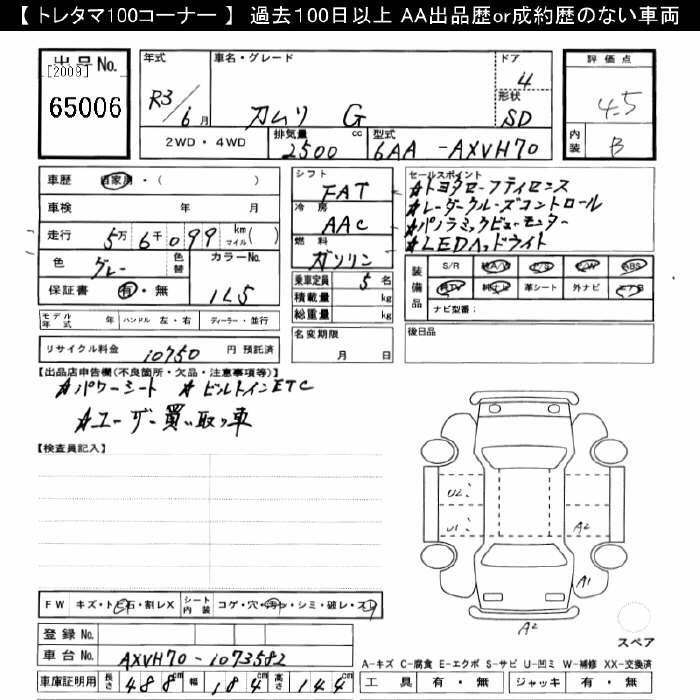 【 トレタマ100コーナー 】 過去100日以上 AA出品歴or成約歴のない車両
出品No.
[2009]
65006
年式
R3/6月
車名・グレード
カムリ G
ドア
4
形状
SD
評価点
4.5
内装
B
2WD・4WD
排気量
2500 cc
型式
6AA -AXVH70
車歴 自家用・( )
車検 年 月
走行 5万6千099 km マイル( )
色 グレー 色替
カラーNo.
1L5
保証書 有・無
シフト
FAT
冷房
AAC
燃料
ガソリン
乗車定員 5 名
積載量 kg
総重量 kg
名変期限
月 日
セールスポイント
#トヨタセーフティセンス
#レーダークルーズコントロール
#パノラミックビューモニター
#LEDヘッドライト
装備品
S/R 純A/W P/S P/W ABS
純TV 純ナビ 革シート 外ナビ エアB
ナビ型番:
後日品
モデル年式 年 ハンドル 左・右 ディーラー・並行
リサイクル料金 10750 円 預託済
【出品店申告欄(不良箇所・欠品・注意事項等)】
#パワーシート #ビルトインETC
#ユーザー買い取り車
【検査員記入】
U2
U1
A2
A1
A2
スペア
FW キズ・トビ石・割レX シート内装 コゲ・穴・汚レ・シミ・破レ・スレ
登録No.
車台No. AXVH70-1073582
車庫証明用 長さ 488cm 幅 184cm 高さ 144cm
A-キズ C-腐食 E-エクボ S-サビ U-凹ミ W-補修 XX-交換済
工具 有・無 ジャッキ 有・無